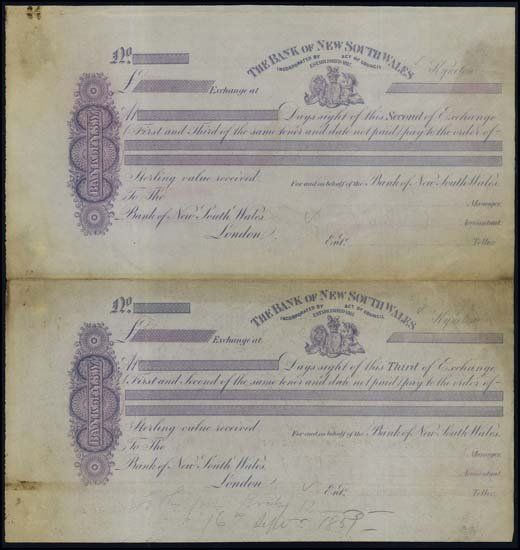 No.
THE BANK OF NEW SOUTH WALES
INCORPORATED BY ACT OF COUNCIL
ESTABLISHED 1817
Kyneton
£ Exchange at
BANK OF N.S.W.
At Days sight of this Second of Exchange
(First and Third of the same tenor and date not paid) pay to the order of
Sterling value received. For and on behalf of the Bank of New South Wales.
To The Manager.
Bank of New South Wales Accountant.
London Ent. Teller.
No.
THE BANK OF NEW SOUTH WALES
INCORPORATED BY ACT OF COUNCIL
ESTABLISHED 1817
Kyneton
£ Exchange at
BANK OF N.S.W.
At Days sight of this Third of Exchange
(First and Second of the same tenor and date not paid) pay to the order of
Sterling value received. For and on behalf of the Bank of New South Wales.
To The Manager.
Bank of New South Wales. Accountant.
London Ent. Teller.
16th Sept 1859